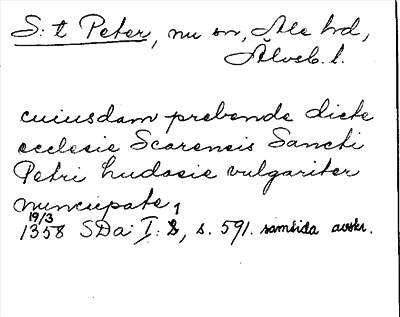 S:t Peter, nu sn, Ale hd,
Älvsb. l.
cuiusdam prebende dicte
ecclesie Scarensis Sancti
Petri hudosie vulgariter
nuncupate,
19/3
1358 SDa: I: 8, s. 591. samtida avskr.